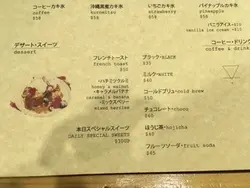 コーヒーカキ氷
coffee
$58
沖縄黒糖カキ氷
kuromitsu
$58
いちごカキ氷
strawberry
$58
パイナップルカキ氷
pineapple
$58
バニラアイス
vanilla ice cream
デザート・スイーツ
dessert
フレンチトースト
french toast
ハチミツクルミ
honey & walnut
キャラメルバナナ
caramel & banana
ミックスベリー
mixed berries
本日スペシャルスイーツ
DAILY SPECIAL SWEETS
コーヒー・ドリンク
coffee & drink
ブラック・BLACK
$35
ミルク・WHITE
$40
コールドブリュ・cold brew
$40
チョコレート・choco
$40
ほうじ茶・hojicha
$40
フルーツソーダ・fruit soda
$40